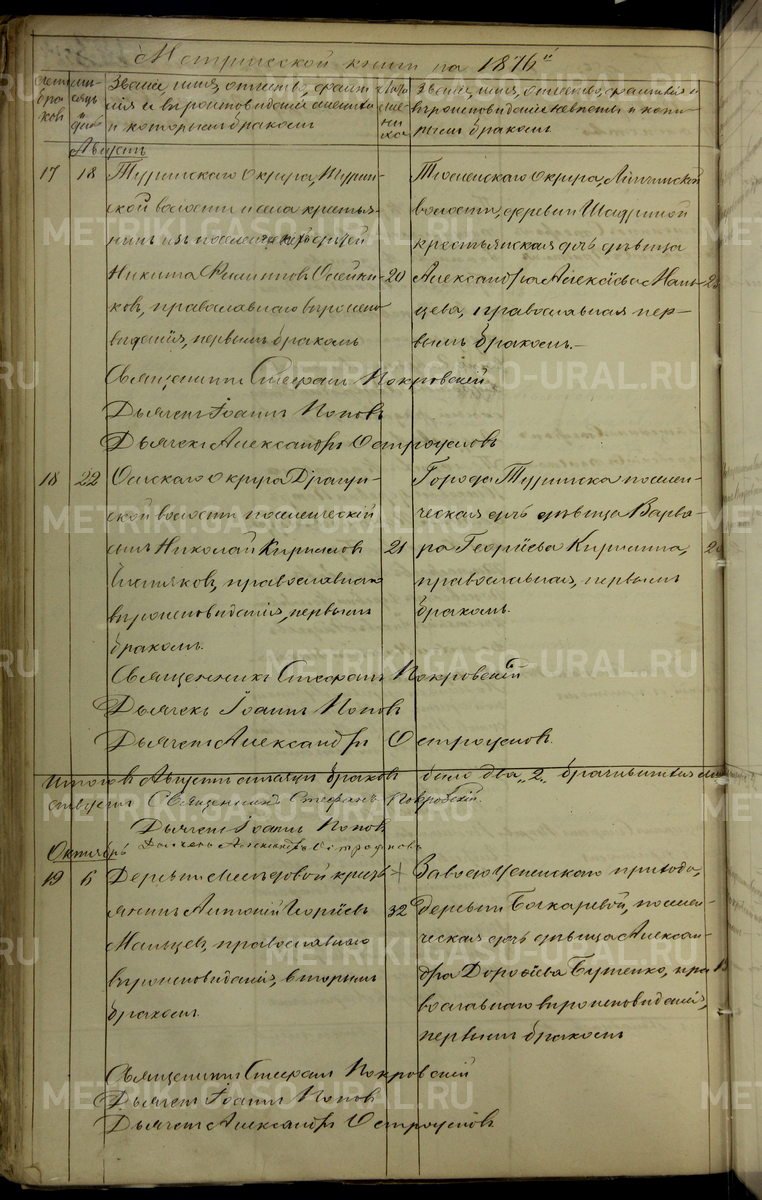 Метрической книги на 1876 "
Счетъ бра ковъ
мѣ сяцъ день
Званіе, имя, отчество, фамилія и вѣроисповѣданіе жениха и которымъ бракомъ
Лѣта же ни ха
Званіе, имя, отчество, фамилія и вѣроисповѣданіе невѣсты и которымъ бракомъ
Августъ
17 18 Туринскаго округа, Турин-
ской волости и села крестья-
нинъ изъ поселенческихъ дѣтей
Никита Филиповъ Олейни- 20
ковъ, православнаго вѣроиспо
вѣданія, первымъ бракомъ
Тюменскаго округа, Липчинской
волости, деревни Шадриной
крестьянская дочь дѣвица
Александра Алексѣева Маль-
цева, православная пер-
вымъ бракомъ.-
Священникъ Стефанъ Покровскій
Дьячекъ Іоаннъ Поповъ
Дьячекъ Александръ Остроумовъ
18 22 округа
ской волости поселенческій
сынъ Николай Кириловъ 21
православнаго
вѣроисповѣданія, первымъ
бракомъ.
Города Туринска поселен-
ческая дочь дѣвица Варва-
ра Георгіева
православная, первымъ
бракомъ.
Священникъ Стефанъ Покровскій
Дьячекъ Іоаннъ Поповъ
Дьячекъ Александръ Остроумовъ.
Итого въ Августѣ мѣсяцѣ браковъ было два "2"
Священникъ Стефанъ Покровскій.
Дьячекъ Іоаннъ Поповъ
Дьячекъ Александръ Остроумовъ
Октябрь
19 6 Деревни Межевой кресть
янинъ Антоній Георгіевъ 32
Мальцевъ, православнаго
вѣроисповѣданія, вторымъ
бракомъ.
Заводоуспенскаго прихода,
деревни Бочкаревой, поселен-
ческая дочь дѣвица Алексан-
дра Дороѳѣева Бутенко, пра
вославнаго вѣроисповѣданія,
первымъ бракомъ
Священникъ Стефанъ Покровскій
Дьячекъ Іоаннъ Поповъ
Дьячекъ Александръ Остроумовъ
METRIKI.GASO-URAL.RU